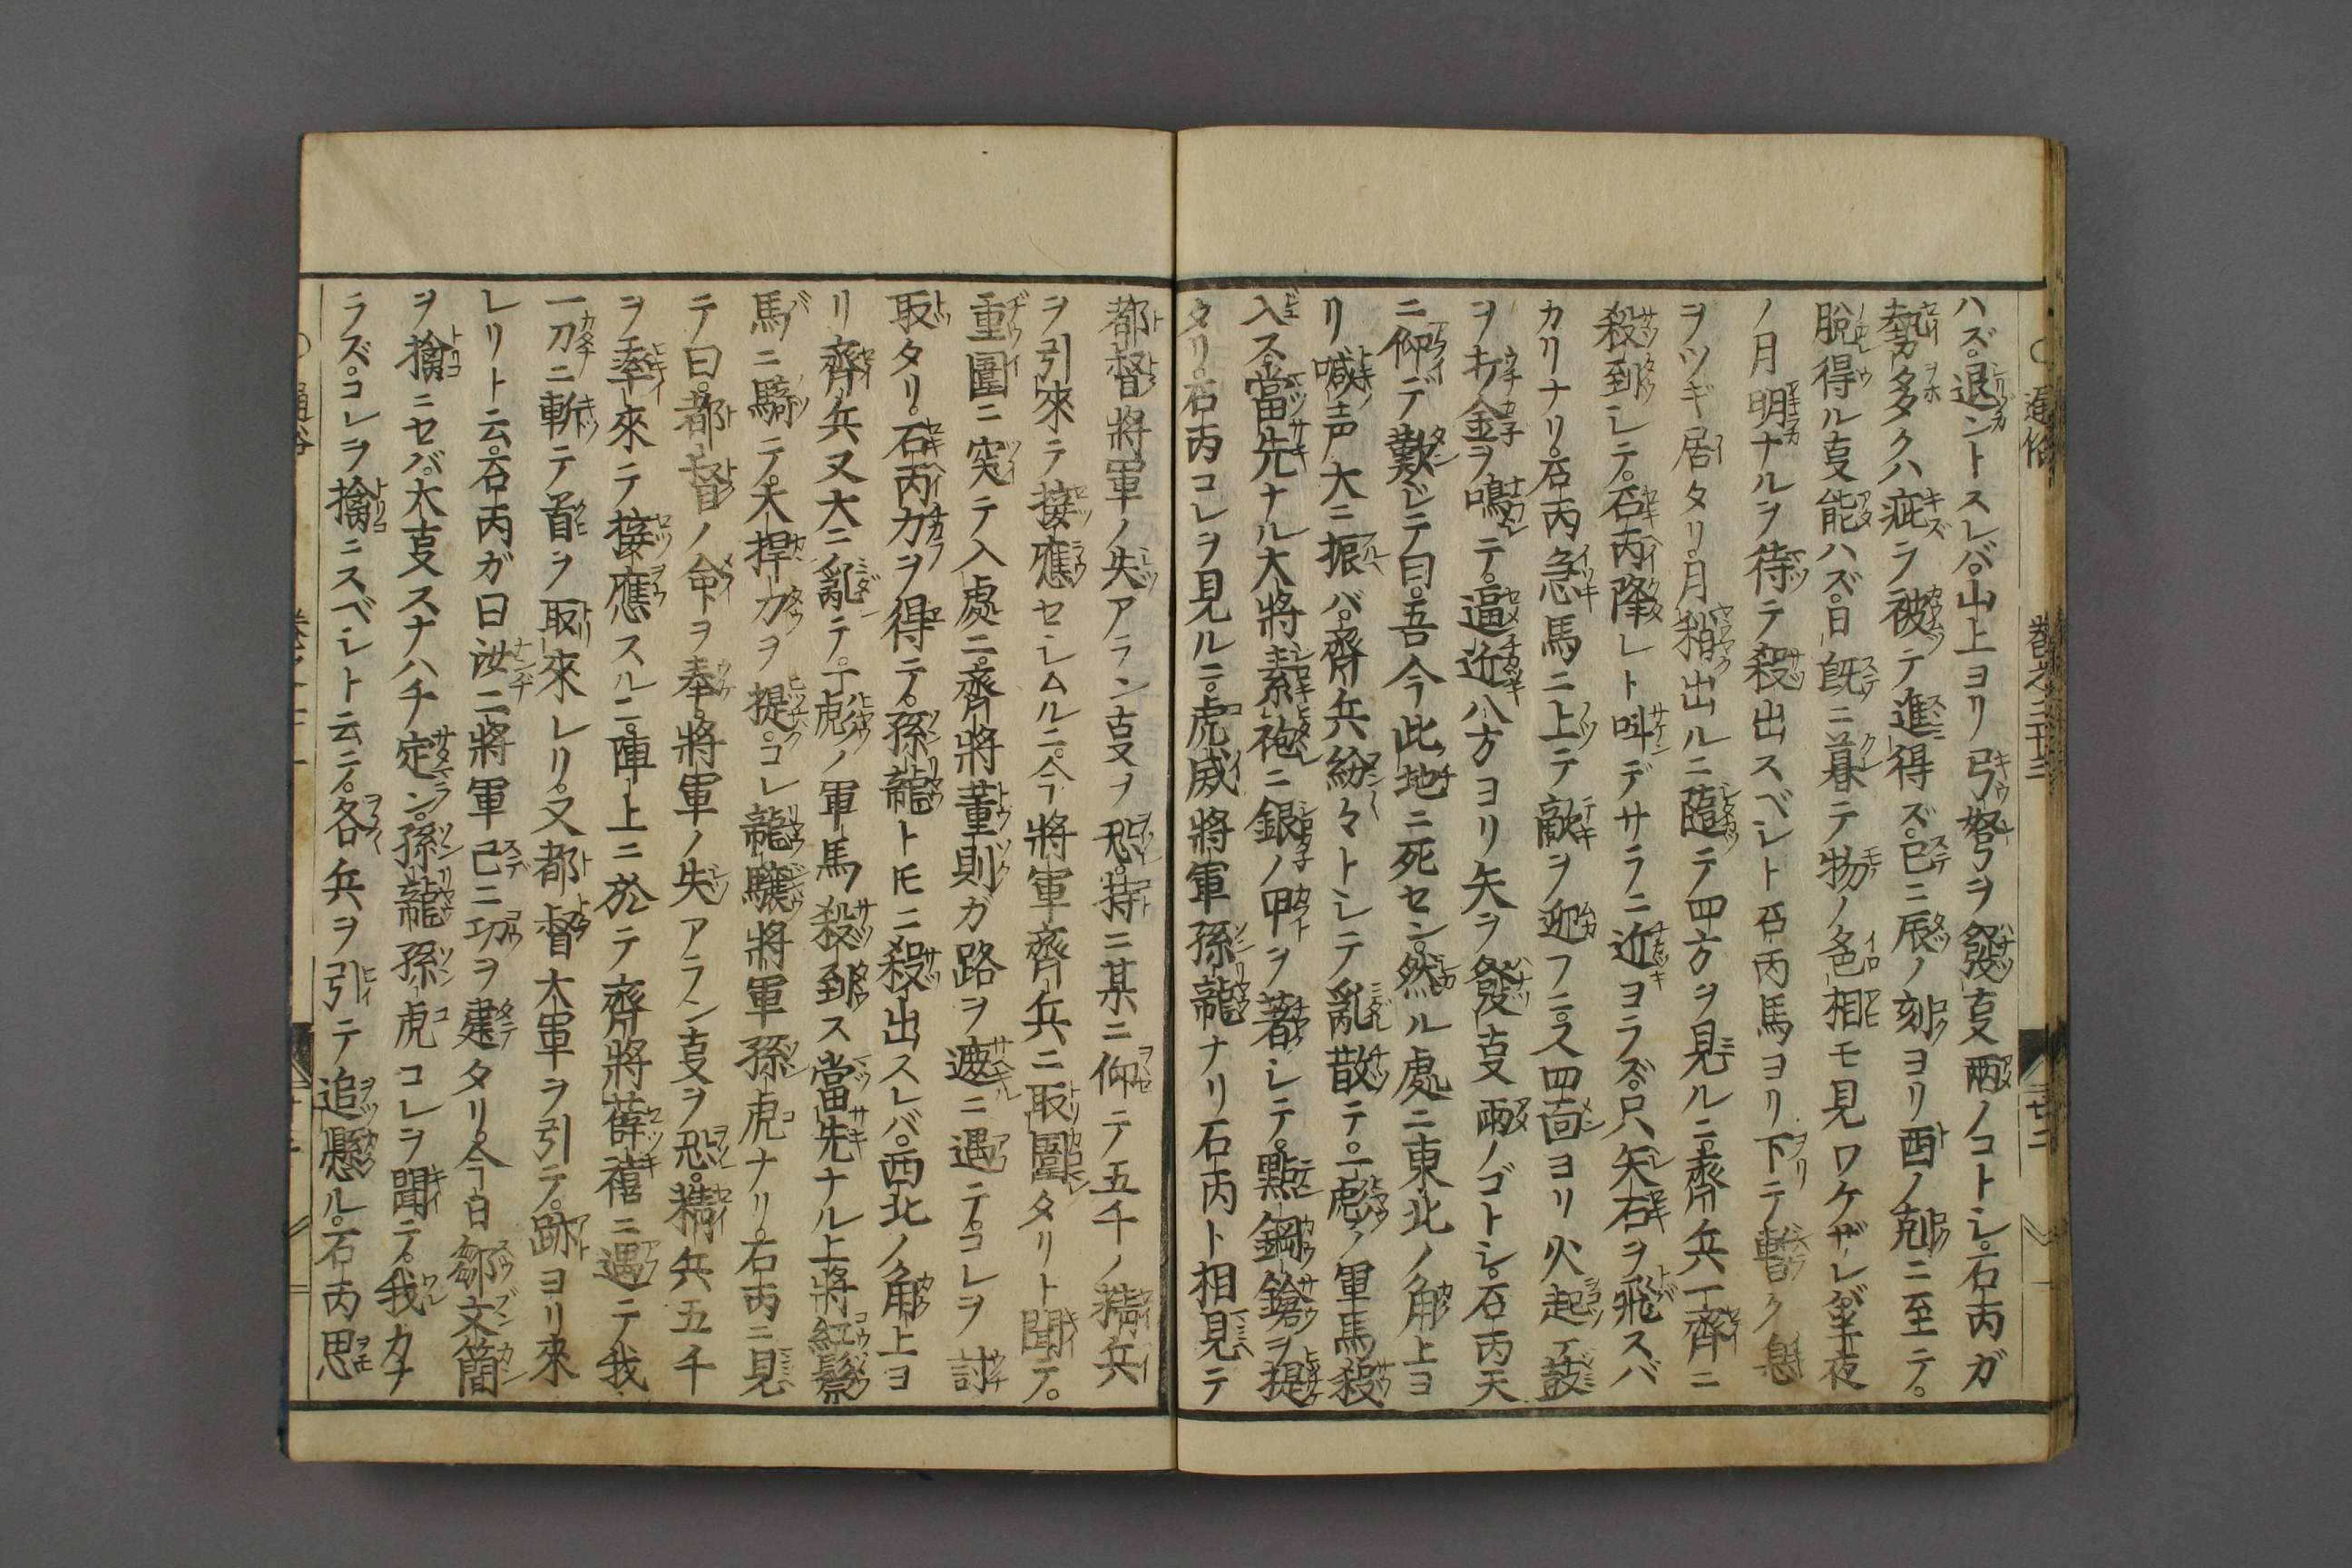 ハズ。退ントスレバ。山上ヨリ弓弩ヲ發ㇳ叓雨ノコトシ。石丙ガ
勢多クハ疵ヲ被テ進得ズ。已ニ辰ノ刻ヨリ酉ノ剋ニ至テ。
脱得ル叓能ハズ。日既ニ暮テ物ノ色相モ見ワケザレバ。半夜
ノ月明ナルヲ待テ殺出スベシト石丙馬ヨリ下テ暫ク息
ヲツギ居タリ。月稍出ルニ隨テ四方ヲ見ルニ。齊兵一齊ニ
殺到シテ。石丙降レト叫デサラニ近ヨラズ。只矢石ヲ飛スバ
カリナリ。石丙急馬ニ上テ敵ヲ迎フニ。又四面ヨリ火起テ鼓
ヲ打金ヲ鳴テ。逼近八方ヨリ矢ヲ發叓雨ノゴトシ。石丙天
ニ仰デ歎ジテ曰。吾今此地ニ死セン。然ル處ニ東北ノ角上ヨ
リ喊声大ニ振バ。齊兵紛々トシテ亂散テ。一彪ノ軍馬殺
入ス。當先ナル大將素袍ニ銀ノ甲ヲ著シテ。點鋼鎗ヲ提
タリ。石丙コレヲ見ルニ。虎威將軍孫龍ナリ石丙ト相見テ
都督將軍ノ失アラン叓ヲ恐。特ニ某ニ仰テ五千ノ精兵
ヲ引來テ接應セシムルニ。今將軍齊兵ニ取圍タリト聞テ。
重圍ニ突テ入處ニ。齊將董則ガ路ヲ遮ニ遇テ。コレヲ討
取タリ。石丙力ヲ得テ。孫龍トモニ殺出スレバ。西北ノ角上ヨ
リ齊兵又大ニ亂テ。一彪ノ軍馬殺到ス當先ナル上將紅鬃
馬ニ騎テ。大捍刀ヲ提。コレ龍驤將軍孫虎ナリ。石丙ニ見
テ曰。都督ノ命ヲ奉。將軍ノ失アラン叓ヲ恐。精兵五千
ヲ率來テ接應スルニ。陣上ニ於テ齊將薛禧ニ遇テ我
一刀ニ斬テ首ヲ取來レリ。又都督大軍ヲ引テ。跡ヨリ來
レリト云。石丙ガ曰汝二將軍已ニ功ヲ建タリ。今日鄒文簡
ヲ擒ニセバ。大叓スナハチ定ン。孫龍孫虎コレヲ聞テ。我カナ
ラズ。コレヲ擒ニスベシト云テ。各兵ヲ引テ追懸ル。石丙思